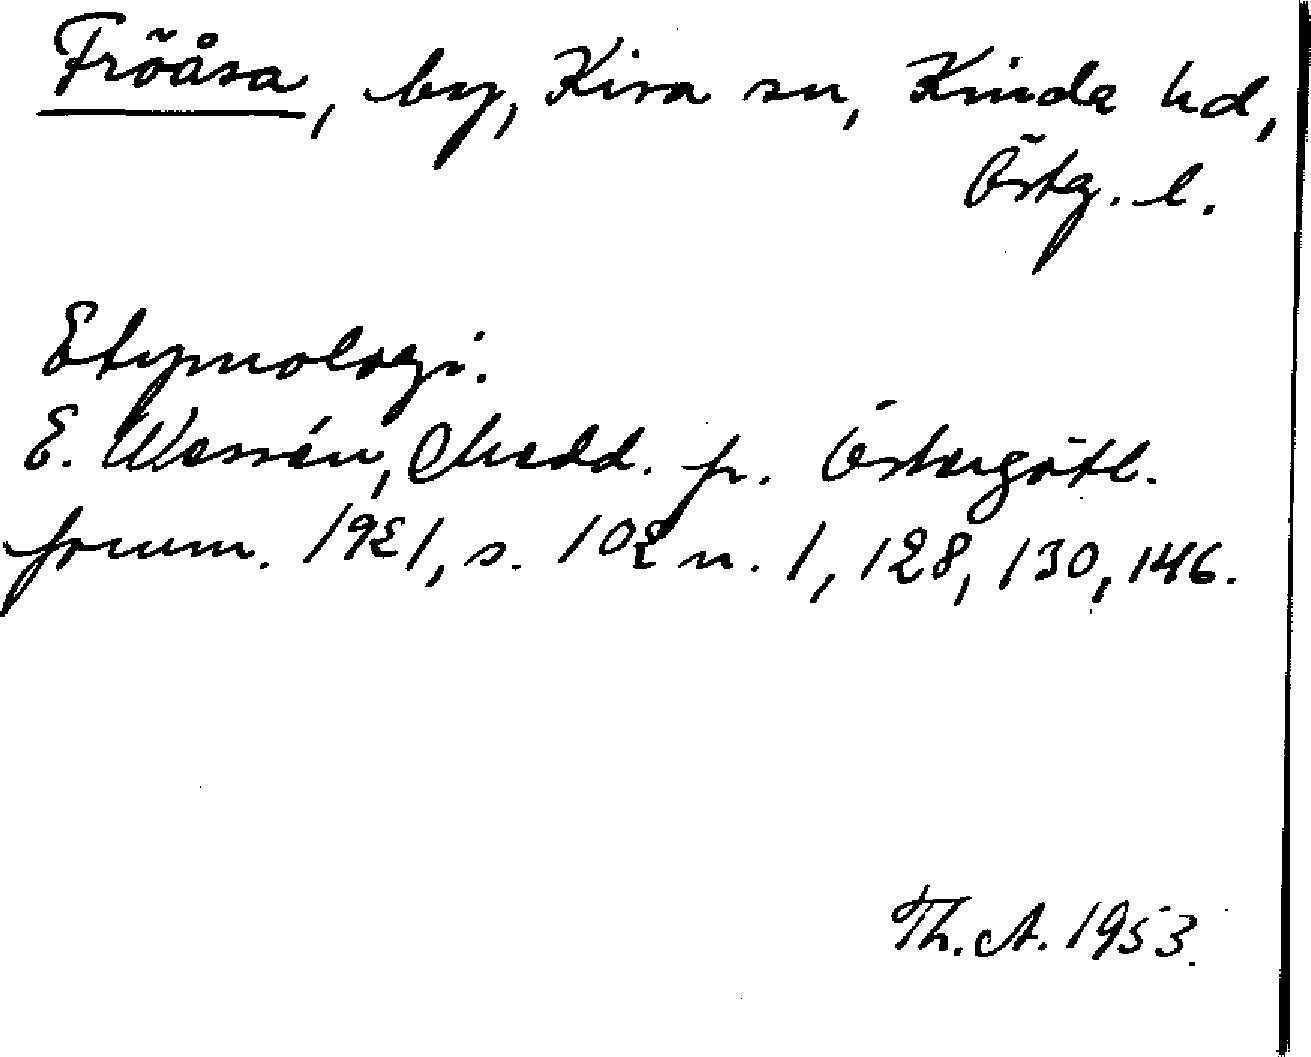 Fröåsa, by, Kisa sn, Kinda hd,
Östg. l.
Etymologi.
E. Wessén, Medd. fr. Östergötl.
fornm. 1921, s. 102 n. 1, 128, 130, 146.
Th. A. 1953.